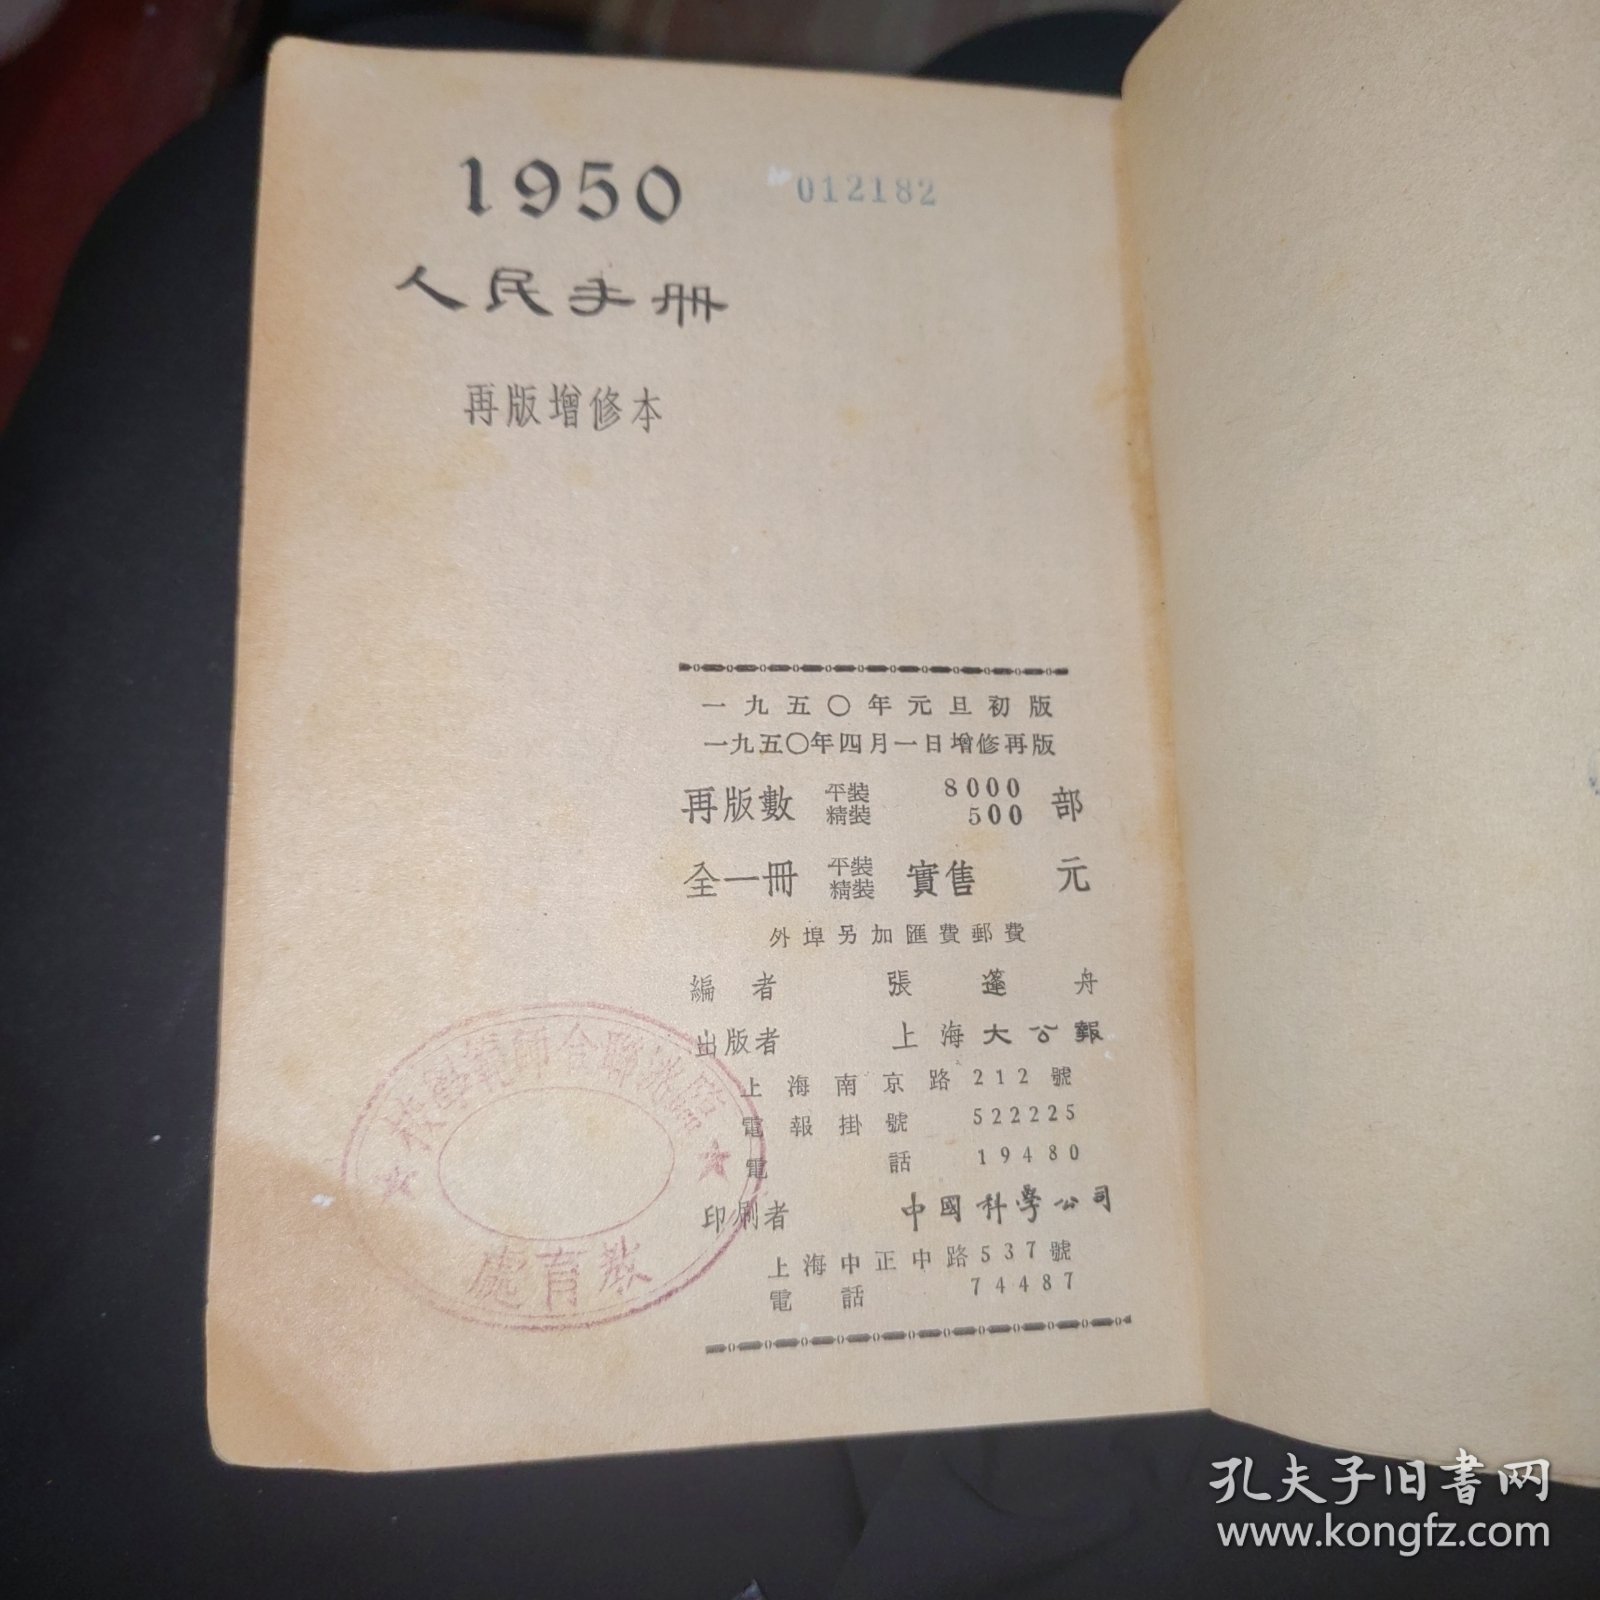 1950
012182
人民手册
再版增修本
一九五〇年元旦初版
一九五〇年四月一日增修再版
再版數 平裝 8000 精裝 500 部
全一冊 平裝 精裝 實售 元
外埠另加匯費郵費
編者 張蓬舟
出版者 上海大公報
上海南京路212號
電報掛號 522225
電話 19480
印刷者 中國科學公司
上海中正中路537號
電話 74487
聯合師範學校
教育處
孔夫子旧書网
www.kongfz.com